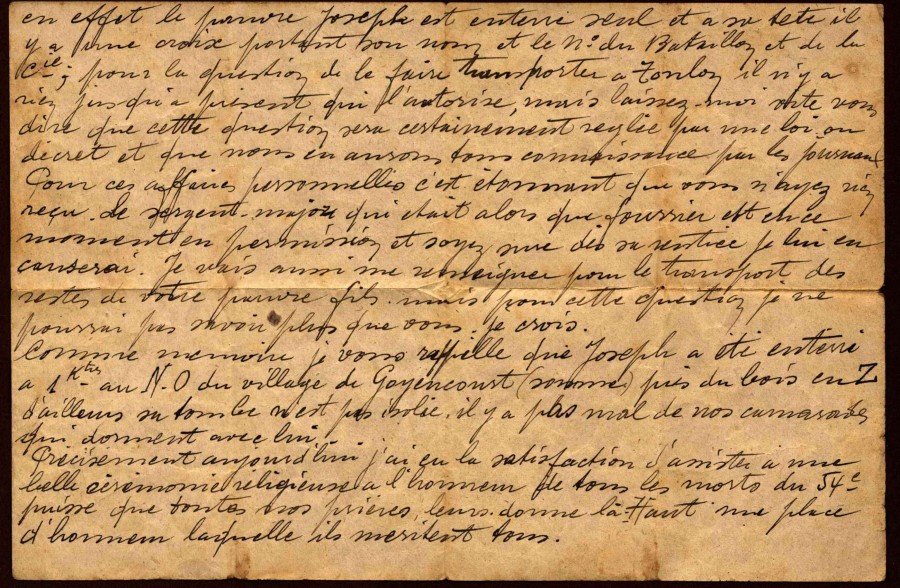 en effet le pauvre Joseph est enterré seul et a sa tête il
y a une croix portant son nom et le No. du Bataillon et de la
Cie; pour la question de le faire transporter a Toulon il n'y a
rien jusqu'a présent qui l'autorise, mais laissez-moi vite vous
dire que cette question sera certainement reglée par une loi ou
décret et que nous en aurons tous connaissance par les journaux
Pour ces affaires personnelles c'est étonnant que vous n'ayez rien
reçu. Le sergent-major qui était alors que fourrier est en ce
moment en permission et soyez sure dès sa rentrée je lui en
causerai. Je vais aussi me renseigner pour le transport des
restes de votre pauvre fils. mais pour cette question je ne
pourrai pas savoir plus que vous. je crois.
Comme memoire je vous rappelle que Joseph a été enterré
a 1 Ktre au N.O du village de Goyencourt (somme) près du bois en Z
d'ailleurs sa tombe n'est pas isolée. il y a pas mal de nos camarades
qui dorment avec lui.
Précisement aujourd'hui j'ai eu la satisfaction d'assister a une
belle cérémonie religieuse a l'honneur de tous les morts du 54e
puisse que toutes nos prières, leurs donne là-Haut une place
d'honneur laquelle ils meritent tous.